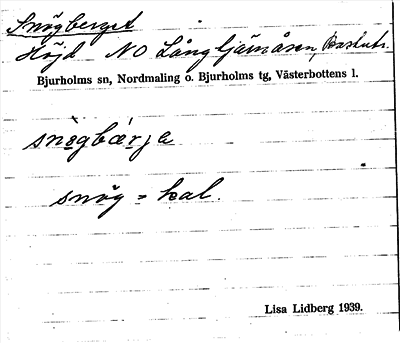 Snögberget
Höjd NO Långtjärnåsen, Bastutr.
Bjurholms sn, Nordmaling o. Bjurholms tg, Västerbottens l.
snøgbǽrja
snög = kal.
Lisa Lidberg 1939.